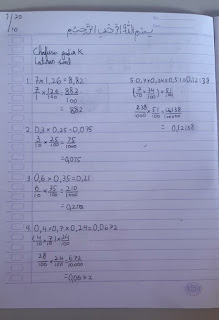 7/20
/10
بسم الله الرحمن الرحيم
1. 7×1,26 = 8,82
7/1 × 126/100 = 882/100
= 882
2. 0,3×0,25=0,075
3/10 × 25/100 = 75/1000
=0,075
3. 0,6×0,35=0,21
6/10 × 35/100 = 210/1000
=0,210
4. 0,4×0,7×0,24=0,0672
(4/10 × 7/10) × 24/100
28/100 × 24/100 = 672/10.000
=0,0672
5. 0,7×0,34×0,51=0,12138
(7/10 × 34/100) × 51/100
238/1000 × 51/100 = 12138/100000
= 0,12138